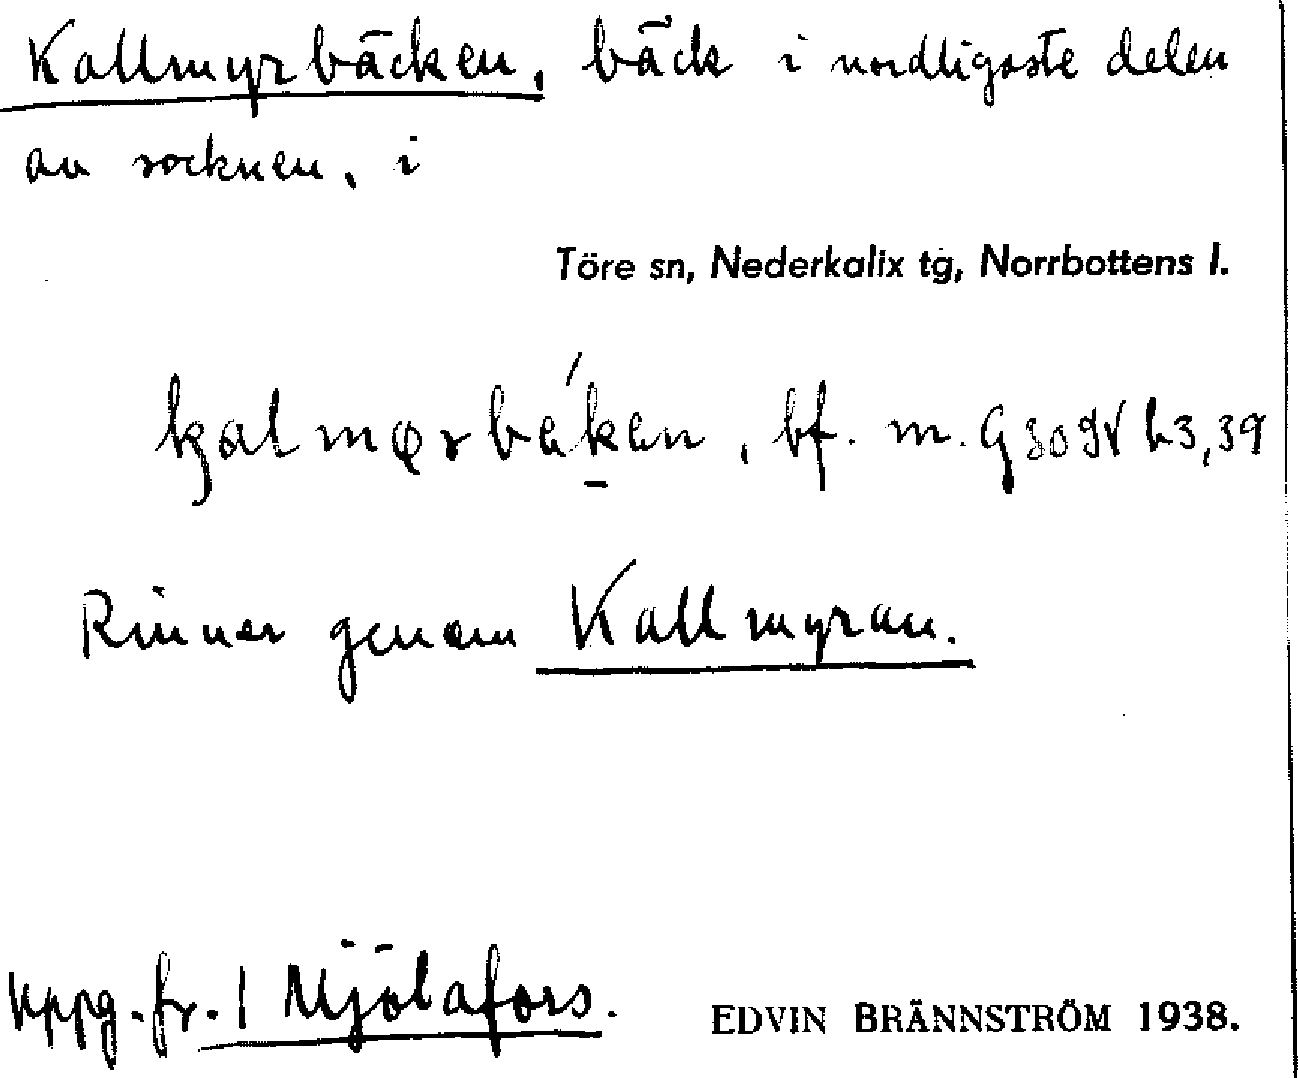 Kallmyrbäcken, bäck i nordligaste delen
av socknen, i
Töre sn, Nederkalix tg, Norrbottens l.
bf. m.
Rinner genom Kallmyran.
uppg. fr. 1 Mjölafors.
EDVIN BRÄNNSTRÖM 1938.